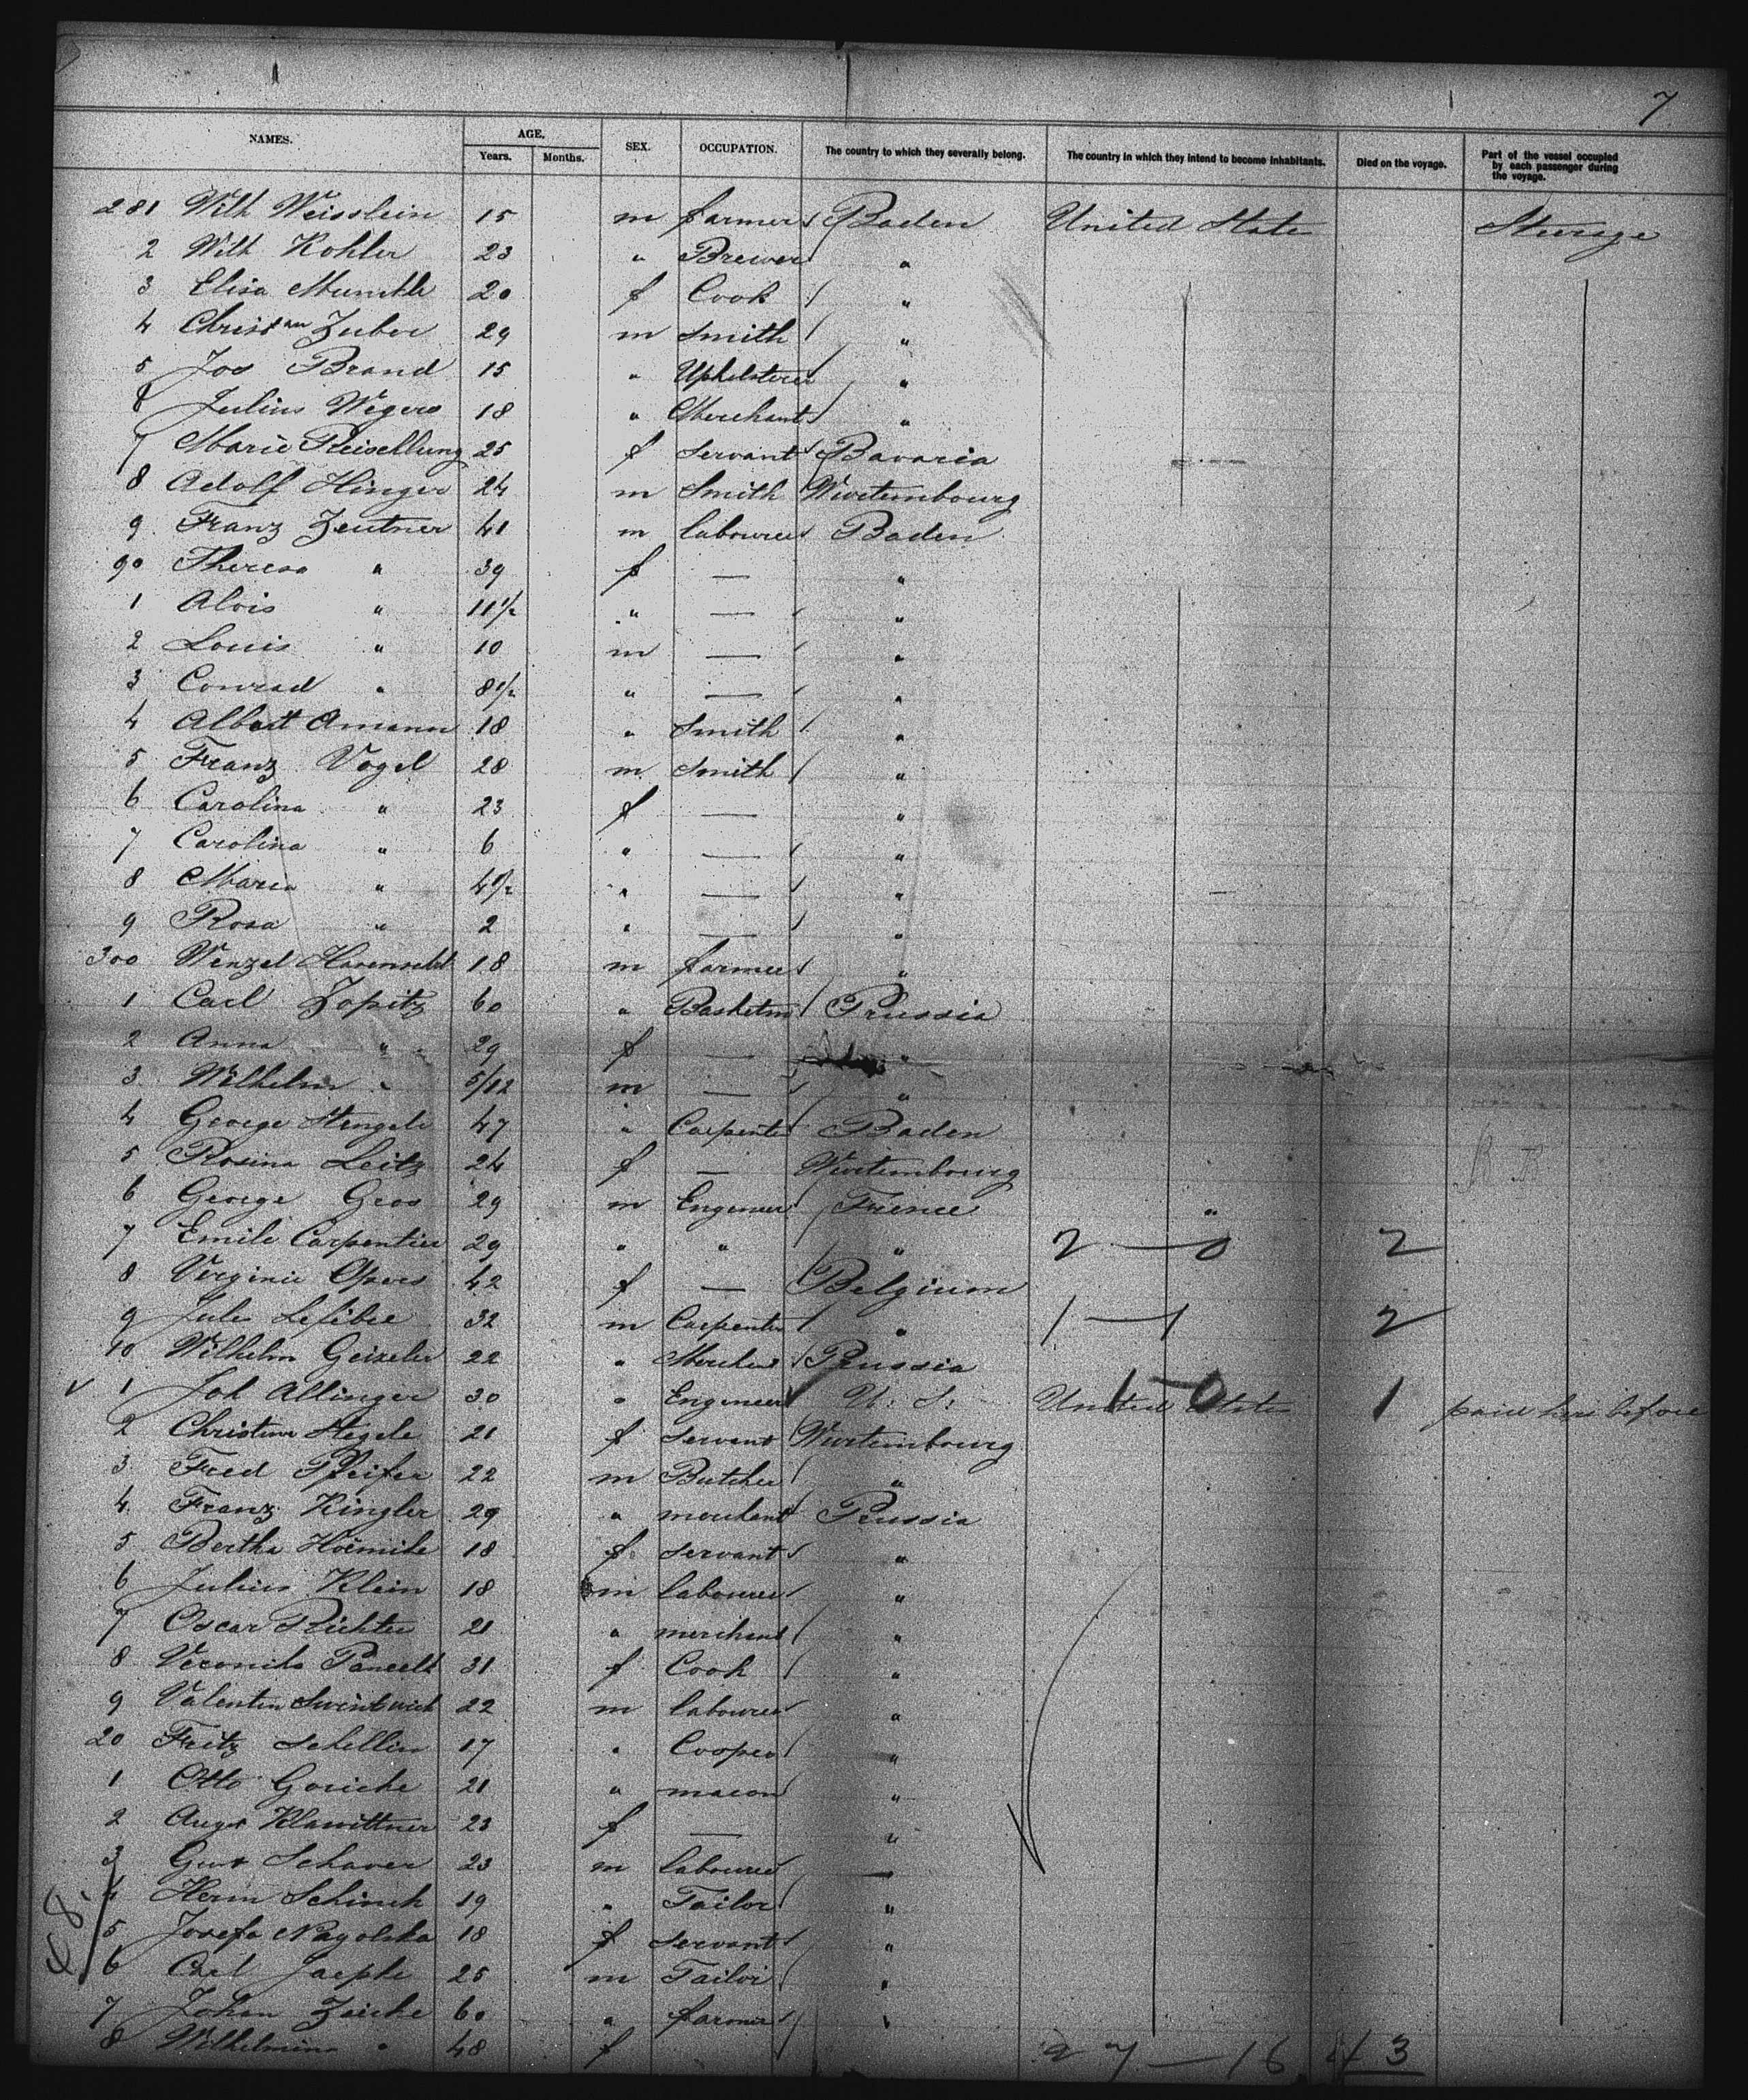 7
NAMES. AGE. Years. Months. SEX. OCCUPATION. The country to which they severally belong. The country in which they intend to become inhabitants. Died on the voyage. Part of the vessel occupied by each passenger during the voyage.
281 Wilh Weisslein 15 m farmer Baden United State Steerage
2 Wilh Kohler 23 " Brewer "
3 Elisa 20 f Cook "
4 Christian Zuber 29 m Smith "
5 Jos Brand 15 " Upholsterer "
6 Julius Wegers 18 " Merchant "
7 Marie 25 f Servant Bavaria
8 Adolf Hinger 24 m Smith Wurtembourg
9 Franz Zeutner 41 m labourer Baden
90 Theresa " 39 f — "
1 Alois " 11 1/2 " — "
2 Louis " 10 m — "
3 Conrad " 8 1/2 " — "
4 Albert Amann 18 " Smith "
5 Franz Vogel 28 m Smith "
6 Carolina " 23 f — "
7 Carolina " 6 " — "
8 Maria " 4 1/2 " — "
9 Rosa " 2 " — "
300 Wenzel 18 m farmer "
1 Carl Zopitz 60 " Basketm Prussia
2 Anna " 29 f — "
3 Wilhelm " 5/12 m — "
4 George Stengele 47 " Carpenter Baden
5 Rosina Leitz 24 f — Wurtembourg
6 George Gros 29 m Engeneer France "
7 Emile Carpentier 29 " " " 2 — 0 2
8 Virginie 42 f — Belgium
9 Jules Lefibre 32 m Carpenter " 1 — 1 2
10 Wilhelm Geizeler 22 " Merchant Prussia
1 Joh Allinger 30 " Engeneer U. S. United State 1 — 0 1 paid here before
2 Christine Stegele 21 f Servant Wurtembourg
3 Fred Pfeifer 22 m Butcher "
4 Franz Kingler 29 " merchant Prussia
5 Bertha 18 f Servant "
6 Julius Klein 18 m labourer "
7 Oscar Richter 21 " merchant "
8 31 f Cook "
9 Valentin 22 m labourer "
20 Fritz Schellin 17 " Cooper "
1 Otto Goricke 21 " macon "
2 Klawittner 23 f — "
3 Gust Schaver 23 m labourer —
4 Herm Schinck 19 " Tailor "
5 Josefa 18 f Servant "
6 Carl 25 m Tailor "
7 Johan Zeiche 60 " farmer "
8 Wilhelmina " 48 f 27 — 16 43